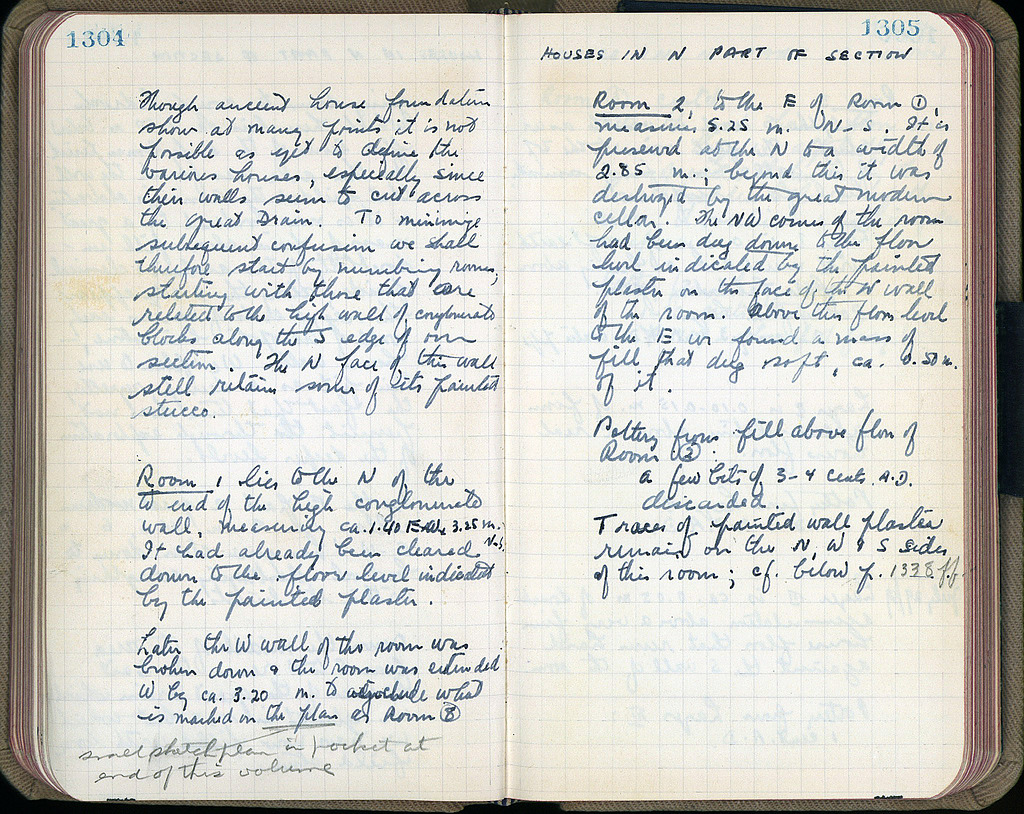 1304
Though ancient house foundations
show at many points it is not
possible as yet to define the
various houses, especially since
their walls seem to cut across
the great Drain. To minimize
subsequent confusion we shall
therefore start by numbering rooms,
starting with those that are
related to the high wall of conglomerate
blocks along the S edge of our
section. The N face of this wall
still retains some of its painted
stucco.
Room 1 lies to the N of the
W end of the high conglomerate
wall, measuring ca. 1.40 E-W x 3.25 m.
N-S.
It had already been cleared
down to the floor level indicated
by the painted plaster.
Later the W wall of the room was
broken down & the room was extended
W by ca. 3.20 m. to include what
is marked on the plan as Room 3
small sketch plan in pocket at
end of this volume
1305
HOUSES IN N PART OF SECTION
Room 2, to the E of Room 1,
measures 5.25 m. N-S. It is
preserved at the N to a width of
2.85 m.; beyond this it was
destroyed by the great modern
cellar. The NW corner of the room
had been dug down to the floor
level indicated by the painted
plaster on the face of the N wall
of the room. Above this floor level
to the E we found a mass of
fill that dug soft, ca. 0.50 m.
of it.
Pottery from fill above floor of
Room 2:
a few bits of 3-4 cents. A.D.
discarded.
Traces of painted wall plaster
remain on the N, W & S sides
of this room; cf. below p. 1338 ff.